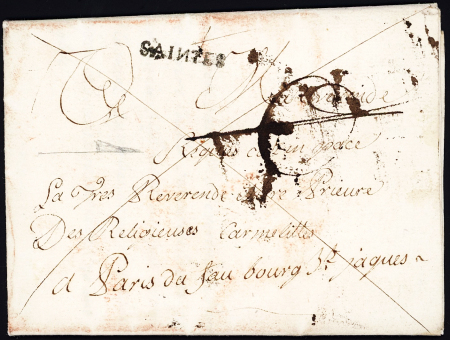 SAINTES
A Ma
La Tres Reverende Mere Prieure
Des Religieuses Carmelittes
a Paris du fau bourg St jaques